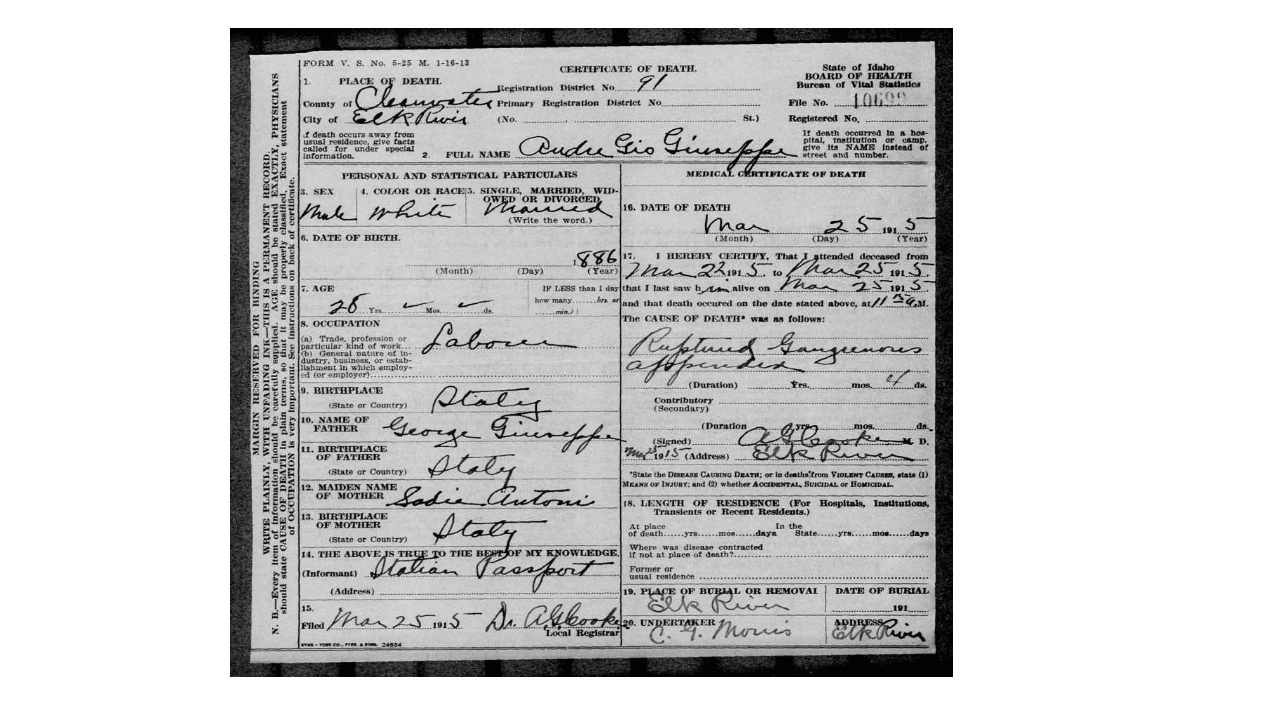 FORM V. S. No. 5-25 M. 1-16-13
CERTIFICATE OF DEATH.
State of Idaho
BOARD OF HEALTH
Bureau of Vital Statistics
1. PLACE OF DEATH.
Registration District No 91
County of Clearwater Primary Registration District No
File No. 10699
City of Elk River (No. St.)
Registered No.
If death occurs away from
usual residence, give facts
called for under special
information.
2. FULL NAME Andre Gio Giuseppe
If death occurred in a hos-
pital, institution or camp,
give its NAME instead of
street and number.
MARGIN RESERVED FOR BINDING
WRITE PLAINLY, WITH UNFADING INK—THIS IS A PERMANENT RECORD.
N. B.—Every item of information should be carefully supplied. AGE should be stated EXACTLY, PHYSICIANS
should state CAUSE OF DEATH in plain terms, so that it may be properly classified. Exact statement
of OCCUPATION is very important. See instructions on back of certificate.
PERSONAL AND STATISTICAL PARTICULARS
3. SEX
Male
4. COLOR OR RACE
White
5. SINGLE, MARRIED, WID-
OWED OR DIVORCED.
Married
(Write the word.)
6. DATE OF BIRTH.
1886
(Month) (Day) (Year)
7. AGE
28 Yrs. Mos. ds.
IF LESS than 1 day
how many hrs. or
min.?
8. OCCUPATION
(a) Trade, profession or
particular kind of work Laborer
(b) General nature of in-
dustry, business, or estab-
lishment in which employ-
ed (or employer)
9. BIRTHPLACE
(State or Country) Italy
10. NAME OF
FATHER George Giuseppe
11. BIRTHPLACE
OF FATHER
(State or Country) Italy
12. MAIDEN NAME
OF MOTHER Sadie Antoni
13. BIRTHPLACE
OF MOTHER
(State or Country) Italy
14. THE ABOVE IS TRUE TO THE BEST OF MY KNOWLEDGE.
(Informant) Italian Passport
(Address)
15.
Filed Mar 25 1915 Dr. A G Cooke
Local Registrar
MEDICAL CERTIFICATE OF DEATH
16. DATE OF DEATH
Mar 25 1915
(Month) (Day) (Year)
17. I HEREBY CERTIFY, That I attended deceased from
Mar 22 1915 to Mar 25 1915
that I last saw him alive on Mar 25 1915
and that death occured on the date stated above, at 11 M.
The CAUSE OF DEATH* was as follows:
Ruptured Gangrenous
appendix
(Duration) Yrs. mos. 4 ds.
Contributory
(Secondary)
(Duration yrs. mos. ds.
(Signed) A G Cooke M. D.
Mar 25 1915 (Address) Elk River
*State the DISEASE CAUSING DEATH; or in deaths from VIOLENT CAUSES, state (1)
MEANS OF INJURY; and (2) whether ACCIDENTAL, SUICIDAL or HOMICIDAL.
18. LENGTH OF RESIDENCE (For Hospitals, Institutions,
Transients or Recent Residents.)
At place In the
of death yrs. mos. days State yrs. mos. days
Where was disease contracted
if not at place of death?
Former or
usual residence
19. PLACE OF BURIAL OR REMOVAL
Elk River
DATE OF BURIAL
191
20. UNDERTAKER
C. G. Morris
ADDRESS
Elk River